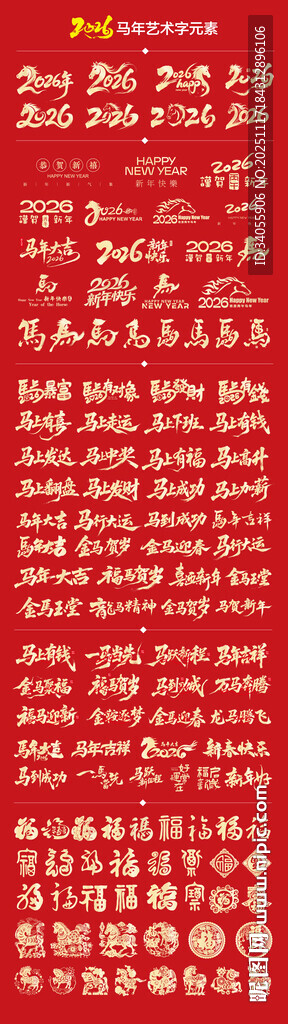 2026 马年艺术字元素
2026年 2026 2026 happy 2026
2026 2026 2026 2026
恭贺新禧 HAPPY NEW YEAR 2026
HAPPY NEW YEAR 新年快樂 謹賀新年
2026 2026 2026
謹賀新年 HAPPY NEW YEAR Happy New Year
马年大吉 2026 2026 新年快乐 2026
2026 新年快乐 HAPPY NEW YEAR 2026 Happy New Year
Year of the Horse
馬 馬 馬 馬 馬 馬 馬 馬
馬上暴富 馬上有对象 馬上發財 馬上有錢
马上有喜 马上走运 马上下班 马上有钱
马上发达 马上中奖 马上有福 马上高升
马上翻盘 马上发财 马上成功 马上加薪
马年大吉 马行大运 马到成功 馬年吉祥
馬年大吉 金马贺岁 金马迎春 马行大运
马年大吉 福马贺岁 喜迎新年 金马玉堂
金马玉堂 龙马精神 金马贺岁 马贺新年
马上有钱 一马当先 马跃新程 马年吉祥
金马聚福 福马贺岁 马到功成 万马奔腾
福马迎新 金鞍逐梦 金马迎春 龙马腾飞
馬年大吉 马年吉祥 2026 新春快乐
马到成功 一馬当先 马跃新征程 好运常在 新年好
福 福 福 福 福 福 福
昵图网 www.nipic.com
ID:34055906 NO:20251117184312896106